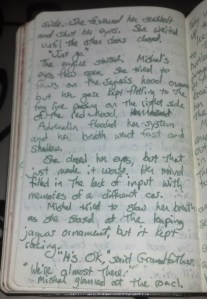 side. She fastened her seatbelt
and shut her eyes. She waited
until the other doors closed.
"Just go."
The engine started. Mishal's
eyes flew open. She tried to
focus on the Jaguar's hood ornament
but her gaze kept flitting to the
on the right side
of the red hood.
Adrenalin flooded her system
and her breath went fast and
shallow.
She closed her eyes, but that
just made it worse. Her mind
filled in the lack of input with
memories of a different car.
Mishal tried to slow her breath
as she stared at the leaping
jaguar ornament, but it kept
racing.
"It's OK," said Grandfather.
"We're almost there."
Mishal glanced at the